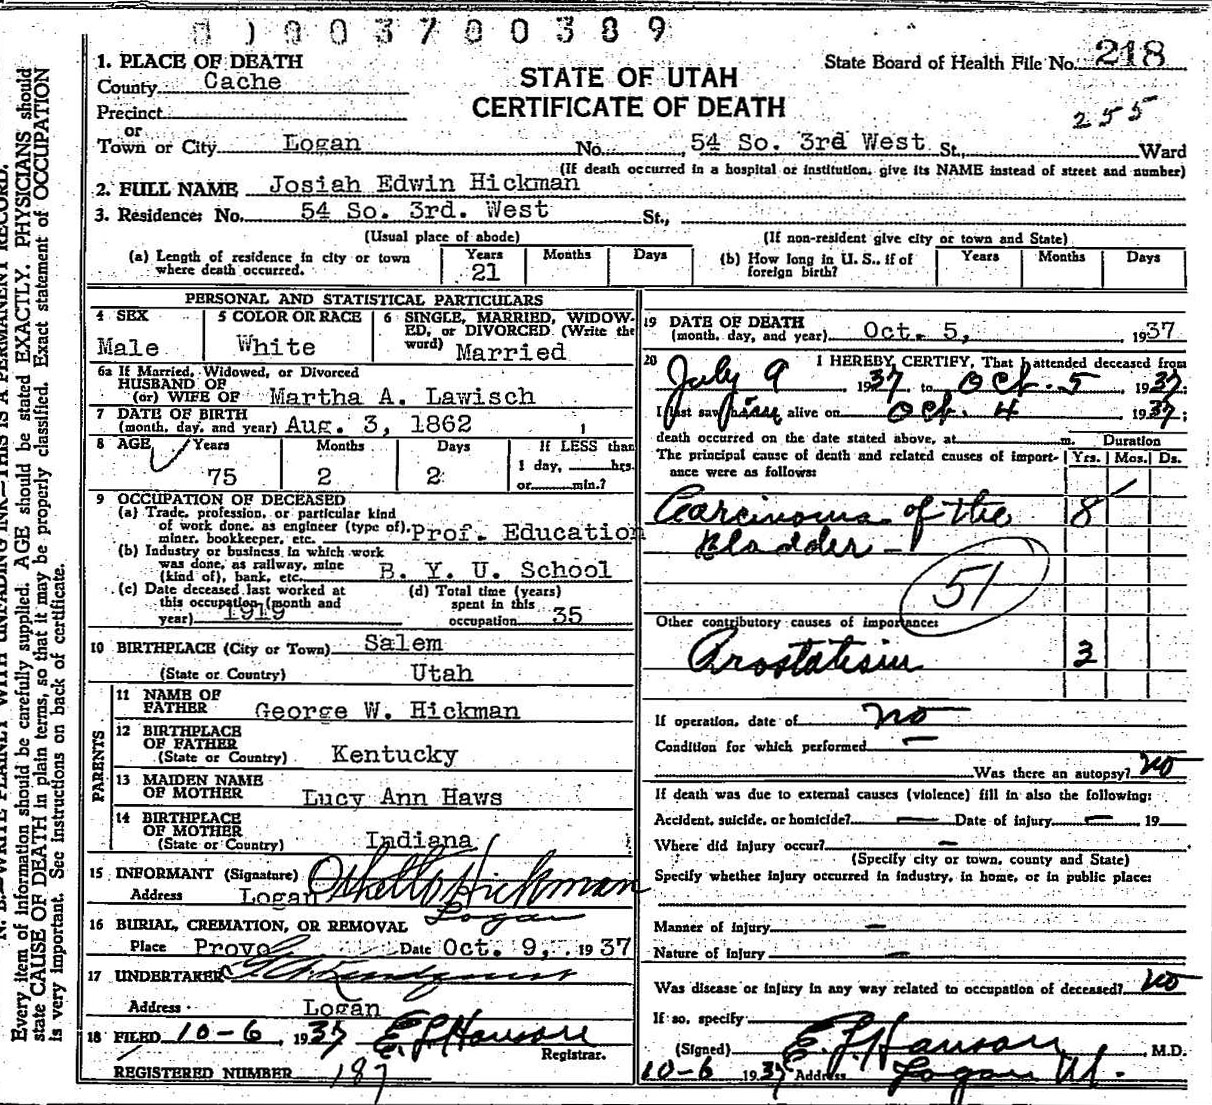 003700389
1. PLACE OF DEATH
County Cache
STATE OF UTAH
CERTIFICATE OF DEATH
State Board of Health File No. 218
255
Precinct
or
Town or City Logan No. 54 So. 3rd West St., Ward
(If death occurred in a hospital or institution, give its NAME instead of street and number)
2. FULL NAME Josiah Edwin Hickman
3. Residence: No. 54 So. 3rd. West St.,
(Usual place of abode) (If non-resident give city or town and State)
(a) Length of residence in city or town where death occurred. Years 21 Months Days
(b) How long in U. S., if of foreign birth? Years Months Days
PERSONAL AND STATISTICAL PARTICULARS
4 SEX Male
5 COLOR OR RACE White
6 SINGLE, MARRIED, WIDOWED, or DIVORCED (Write the word) Married
6a If Married, Widowed, or Divorced
HUSBAND OF
(or) WIFE OF Martha A. Lawisch
7 DATE OF BIRTH
(month, day, and year) Aug. 3, 1862
8 AGE Years 75 Months 2 Days 2 If LESS than 1 day, hrs. or min.?
9 OCCUPATION OF DECEASED
(a) Trade, profession, or particular kind of work done, as engineer (type of), miner, bookkeeper, etc. Prof. Education
(b) Industry or business in which work was done, as railway, mine (kind of), bank, etc. B. Y. U. School
(c) Date deceased last worked at this occupation (month and year) 1919
(d) Total time (years) spent in this occupation 35
10 BIRTHPLACE (City or Town) Salem
(State or Country) Utah
PARENTS
11 NAME OF FATHER George W. Hickman
12 BIRTHPLACE OF FATHER
(State or Country) Kentucky
13 MAIDEN NAME OF MOTHER Lucy Ann Haws
14 BIRTHPLACE OF MOTHER
(State or Country) Indiana
15 INFORMANT (Signature) Othello Hickman
Address Logan Logan
16 BURIAL, CREMATION, OR REMOVAL
Place Provo Date Oct. 9, 1937
17 UNDERTAKER
Address Logan
18 FILED 10-6, 1937 E. L. Hanson
Registrar.
REGISTERED NUMBER 187
19 DATE OF DEATH
(month, day, and year) Oct. 5, 1937
20 I HEREBY CERTIFY, That I attended deceased from
July 9 1937 to Oct. 5 1937
I last saw him alive on Oct. 4 1937;
death occurred on the date stated above, at m.
Duration
The principal cause of death and related causes of importance were as follows: Yrs. Mos. Ds.
Carcinoma of the 8
Bladder -
51
Other contributory causes of importance:
Prostatism 3
If operation, date of no
Condition for which performed
Was there an autopsy? no
If death was due to external causes (violence) fill in also the following:
Accident, suicide, or homicide? Date of injury 19
Where did injury occur?
(Specify city or town, county and State)
Specify whether injury occurred in industry, in home, or in public place:
Manner of Injury
Nature of Injury
Was disease or injury in any way related to occupation of deceased? no
If so, specify
(Signed) E. L. Hanson, M.D.
10-6 1937 Address Logan U.
N. B.—WRITE PLAINLY WITH UNFADING INK—THIS IS A PERMANENT RECORD.
Every item of information should be carefully supplied. AGE should be stated EXACTLY. PHYSICIANS should
state CAUSE OF DEATH in plain terms, so that it may be properly classified. Exact statement of OCCUPATION
is very important. See instructions on back of certificate.